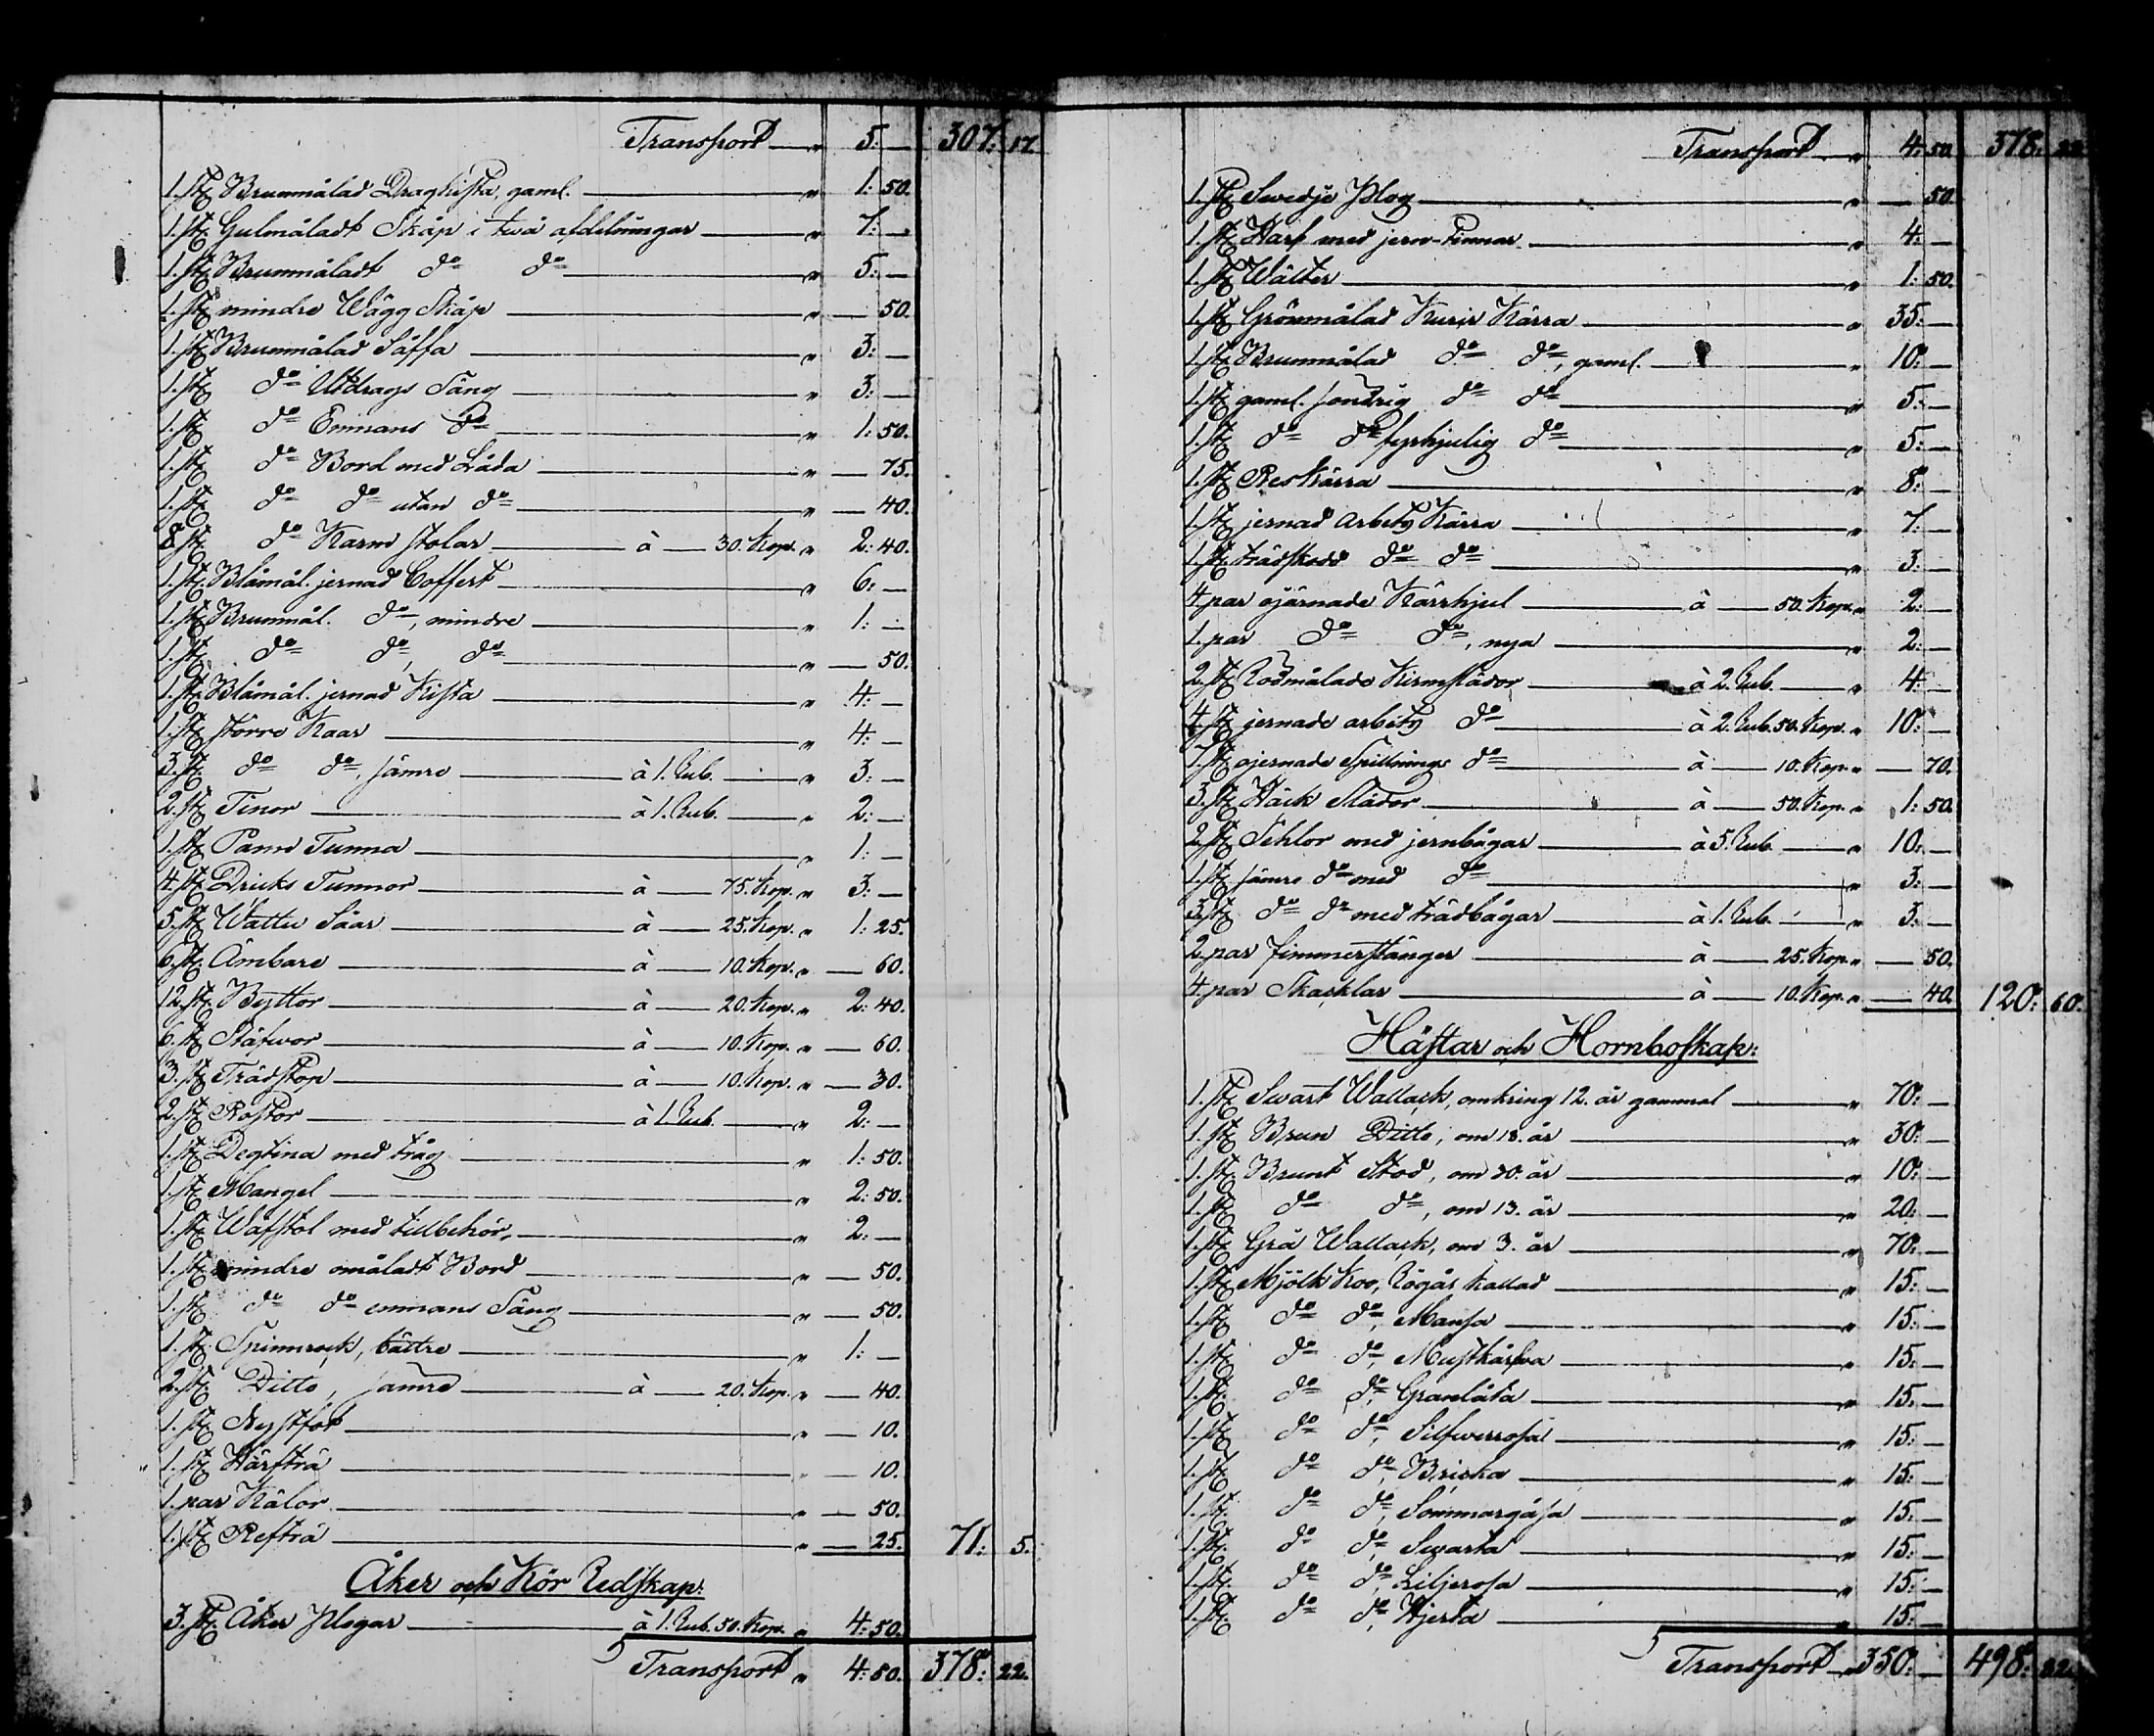 Transport „ 5: — 307: 17.
1. st. Brunmålad Draghista, gaml. „ 1: 50.
1. st. Gulmåladt Skåp i twå afdelningar „ 7: —
1. st. Brunmåladt do do „ 5: —
1. st. mindre Wägg Skåp „ — 50.
1. st. Brunmålad Säffa „ 3: —
1. st. do Utdrags Säng „ 3: —
1. st. do Enmans do „ 1: 50.
1. st. do Bord med Låda „ — 75.
1. st. do do utan do „ — 40.
8. st. do Karm stolar à — 30. Kop. „ 2: 40.
1. st. Blåmål. jernad Coffert „ 6: —
1. st. Brunmål. do, mindre „ 1: —
1. st. do do, do „ — 50.
1. st. Blåmål. jernad Kista „ 4: —
1. st. större Kaar „ 4: —
3. st. do do, sämre à 1. Rub. „ 3: —
2. st. Tinor à 1. Rub. „ 2: —
1. st. Pann Tunna „ 1: —
4. st. Dricks Tunnor à — 75. Kop. „ 3: —
5. st. Wattu Såar à — 25. Kop. „ 1: 25.
6. st. Ämbare à — 10. Kop. „ — 60.
12. st. Byttor à — 20. Kop. „ 2: 40.
6. st. Stäfwor à — 10. Kop. „ — 60.
3. st. Trädstop à — 10. Kop. „ — 30.
2. st. Rostor à 1. Rub. „ 2: —
1. st. Degtina med tråg „ 1: 50.
1. st. Mangel „ 2: 50.
1. st. Wäfstol med tillbehör, „ 2: —
1. st. mindre omåladt Bord „ — 50.
1. st. do do enmans Säng „ — 50.
1. st. Spinnrock, bättre „ 1: —
2. st. Ditto, sämre à — 20. Kop. „ — 40.
1. st. Nystfot „ — 10.
1. st. Härfträ „ — 10.
1. par Kålor „ — 50.
1. st. Refträ „ — 25. 71: 5.
Åker och Kör Redskap:
3. st. Åker Plogar à 1. Rub. 50. Kop. „ 4: 50.
Transport „ 4: 50. 378: 22.
Transport „ 4: 50. 378: 22.
1. st. Swedje Plog „ — 50.
1. st. Harf med jern-Pinnar „ 4: —
1. st. Wälter „ 1: 50.
1. st. Grönmålad Kurir Kärra „ 35: —
1. st. Brunmålad do do, gaml. „ 10: —
1. st. gaml. söndrig do do „ 5: —
1. st. do do fyrhjulig do „ 5: —
1. st. Reskärra „ 8: —
1. st. jernad arbets Kärra „ 7: —
1. st. trädskodd do do „ 3: —
4. par ojärnade Kärrhjul à — 50. Kop. „ 2: —
1. par do do, nya „ 2: —
2. st. Rödmålade Kirmslädor à 2. Rub. „ 4: —
4. st. jernade arbets do à 2. Rub. 50. Kop. „ 10: —
7. st. ojernade Spillnings do à — 10. Kop. „ — 70.
3. st. Häck Slädor à — 50. Kop. „ 1: 50.
2. st. Sehlor med jernbågar à 5. Rub. „ 10: —
1. st. sämre do med do „ 3: —
3. st. do do med trädbågar à 1. Rub. „ 3: —
2. par Timmerstänger à — 25. Kop. „ — 50.
4. par Skacklar à — 10. Kop. „ — 40. 120: 60.
Hästar och Hornboskap:
1. st. Swart Wallack, omkring 12. år gammal „ 70: —
1. st. Brun Ditto, om 18. år „ 30: —
1. st. Brunt Stod, om 20. år „ 10: —
1. st. do do, om 13. år „ 20: —
1. st. Grå Wallack, om 3. år „ 70: —
1. st. Mjölk Koo, Rögås kallad „ 15: —
1. st. do do, Mansa „ 15: —
1. st. do do, Mustkårfwa „ 15: —
1. st. do do, Granlåta „ 15: —
1. st. do do, Silfwerrosa „ 15: —
1. st. do do, Bricka „ 15: —
1. st. do do, Sommargåsa „ 15: —
1. st. do do, Swarta „ 15: —
1. st. do do, Liljerosa „ 15: —
1. st. do do, Hjerta „ 15: —
Transport „ 350: — 498: 82.